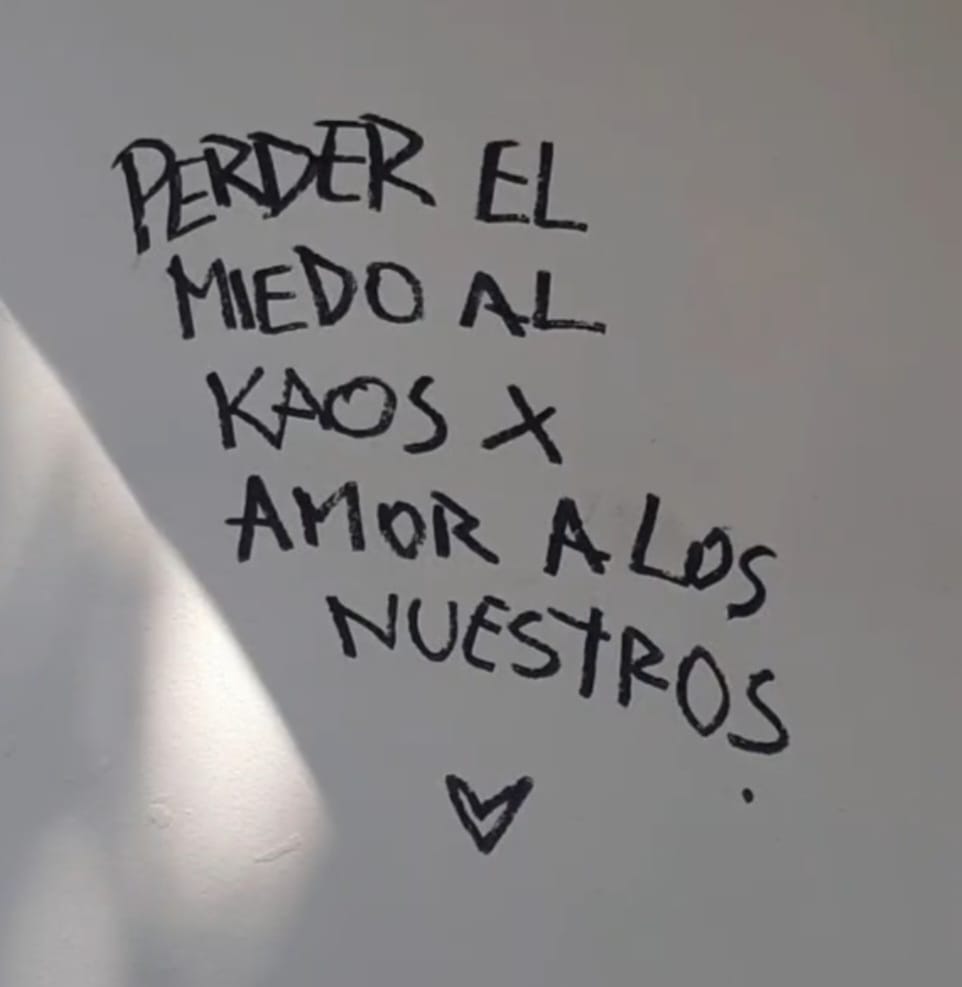 PERDER EL
MIEDO AL
KAOS X
AMOR A LOS
NUESTROS.